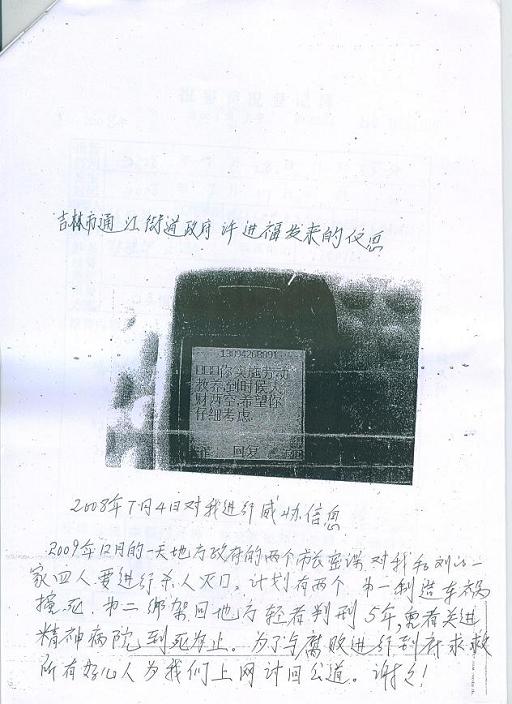 吉林市通江街道政府许进福发来的信息
13094268091
你实施劳动
教养,到时候人
财两空,希望你
仔细考虑.
回复
2008年7月4日对我进行威协信息
2009年12月的一天地方政府的两个市长密谋对我和刘
家四人要进行杀人灭口。计划有两个.第一制造车祸
撞死.第二绑架回地方轻者判刑5年,重者关进
精神病院到死为止。为了与腐败进行到底求救
所有好心人为我们上网讨回公道。谢谢!